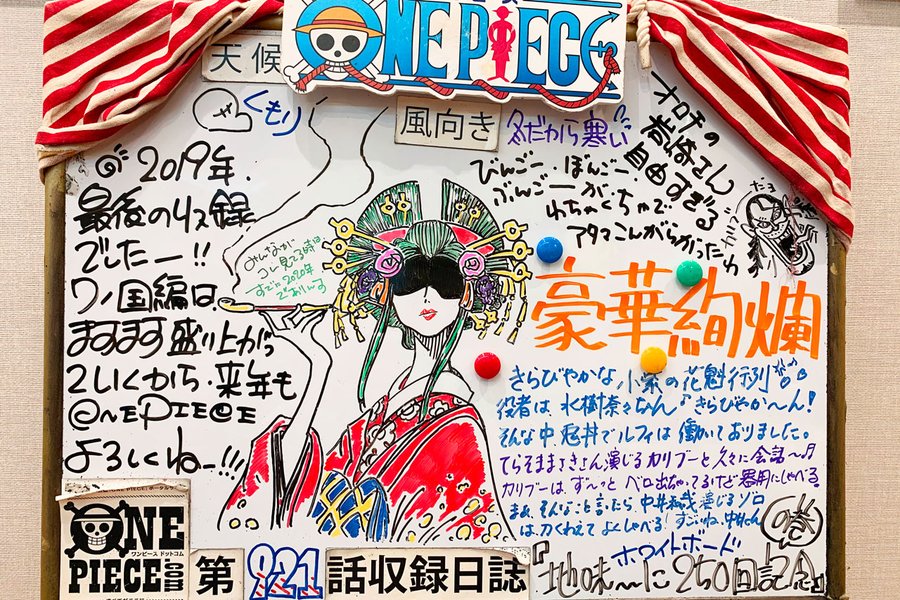 ONE PIECE
天候
くもり
風向き
冬だから寒い
2019年、
最後のリス録
でしたー!!
ワノ国編は
ますます盛り上がっ
ていくから、来年も
@NEPIE@E
よろしくねー!!!
みんなが
コレ見てる時は
すでに2020年
でありんす
びんごー・ぼんごー
ぶんごーが、
わちゃくちゃで
アタマこんがらがったわ
オロチの
岩崎さん
自由すぎる
豪華絢爛
きらびやかな、小紫の花魁行列
役者は、水樹奈々さん きらびやか〜ん!
そんな中、兎丼でルフィは働いておりました。
てらそままさきさん演じるカリブーと久々に会話〜♬
カリブーは、ず〜っとベロ出ちゃってるけど器用にしゃべる。
まぁ、そんなこと言ったら中井和哉演じるゾロ
は刀くわえてよーしゃべる!すごいね、中井くん
の巻
『ホワイトボード
地味〜に250回記念』
ONE
ワンピース ドットコム
PIECE.COM
第921話収録日誌